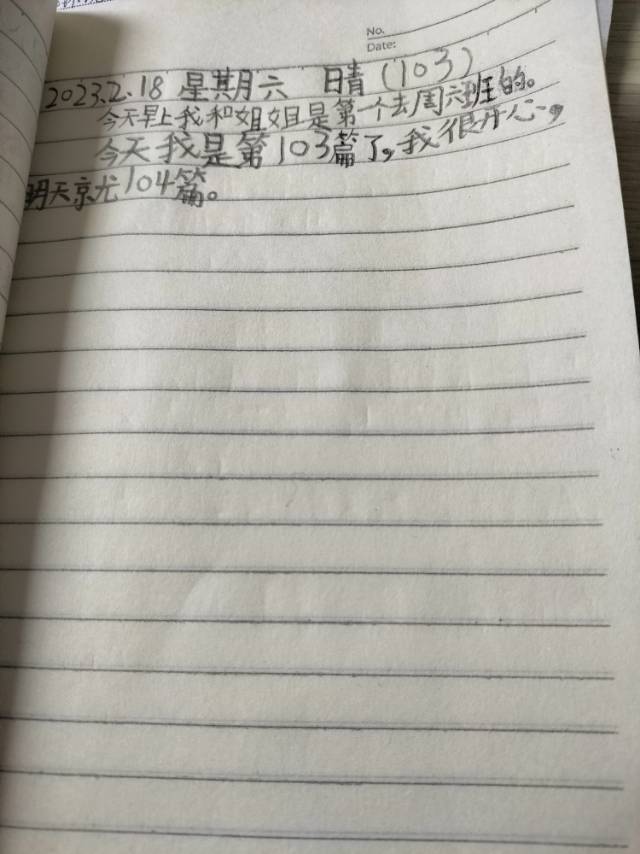 No.
Date:
2023.2.18 星期六 晴(103)
今天早上我和姐姐是第一个去周六班的。
今天我是第103篇了,我很开心,
明天京尤104篇。